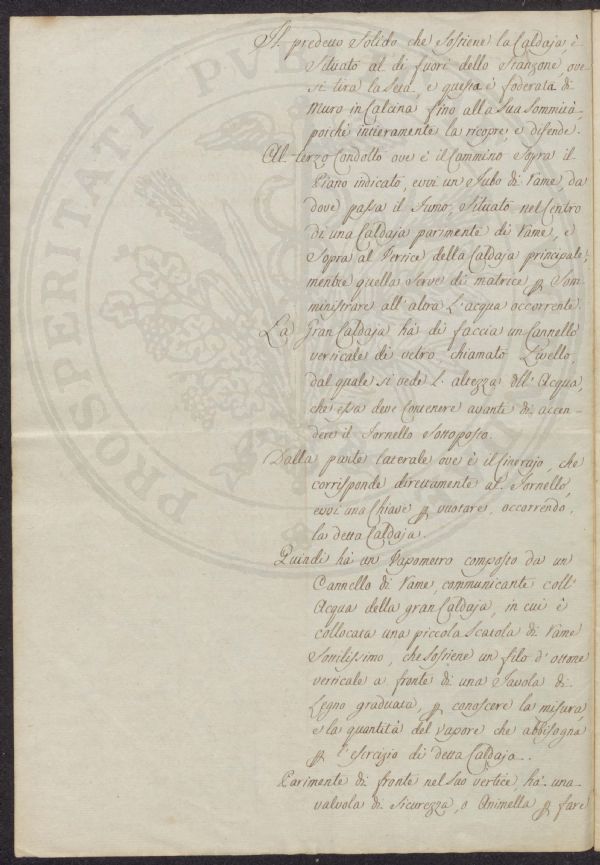 Il predetto Solido che Sostiene la Caldaja, è
Situato al di fuori dello Stanzone ove
si tira la Seta, e questa è foderata di
Muro in Calcina fino alla Sua Sommità,
poichè intieramente la ricopre, e difende.
Al terzo Condotto ove è il Cammino Sopra il
Piano indicato, evvi un Tubo di Rame, da
dove passa il Fumo, Situato nel Centro
di una Caldaja parimente di Rame, e
Sopra al Vertice della Caldaja principale;
mentre quella Serve di matrice p Som-
ministrare all'altra L'acqua occorrente.
La Gran Caldaja hà di faccia un Cannello
verticale di vetro, chiamato Livello
dal quale si vede L'altezza dll'Acqua,
che essa deve Contenere avanti di accen-
dere il Fornello Sottoposto.
Dalla parte laterale ove è il Cinerajo, che
corrisponde direttamente al Fornello,
evvi una Chiave p vuotare, occorrendo,
la detta Caldaja.
Quindi hà un Vapometro composto da un
Cannello di Rame, communicante coll'
Acqua della gran Caldaja, in cui è
collocata una piccola Scatola di Rame
Sottilissimo, che Sostiene un filo d'ottone
verticale a fronte di una Tavola di
Legno graduata, p conoscere la misura,
e la quantità del vapore che abbisogna
p l'esercizio di detta Caldaja.
Parimente di fronte nel Suo vertice, hà una
valvola di Sicurezza, o Animella p fare
PROSPERITATI PUB